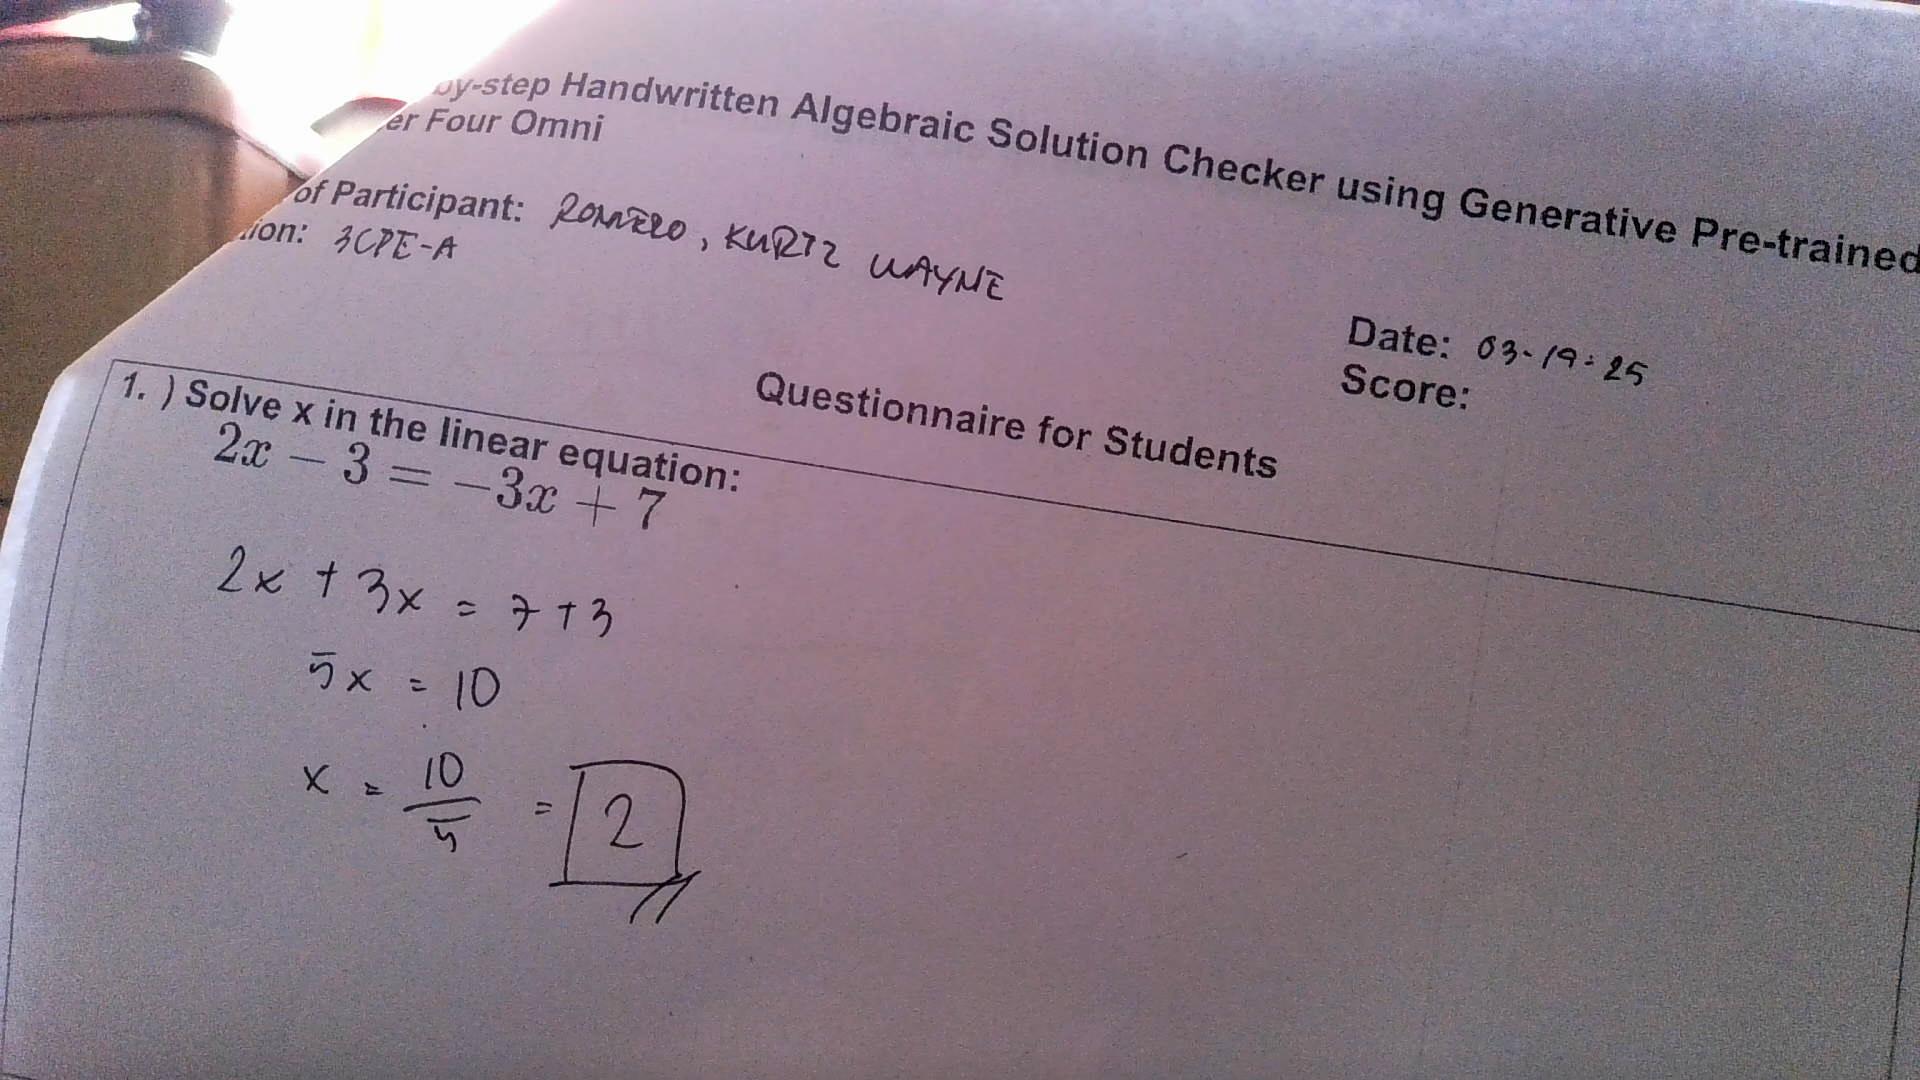 by-step Handwritten Algebraic Solution Checker using Generative Pre-trained
er Four Omni
of Participant: ROMERO, KURTZ WAYNE
tion: 3CPE-A
Date: 03-19-25
Score:
Questionnaire for Students
1. ) Solve x in the linear equation:
2x − 3 = −3x + 7
2x + 3x = 7 + 3
5x = 10
x = 10/5 = 2